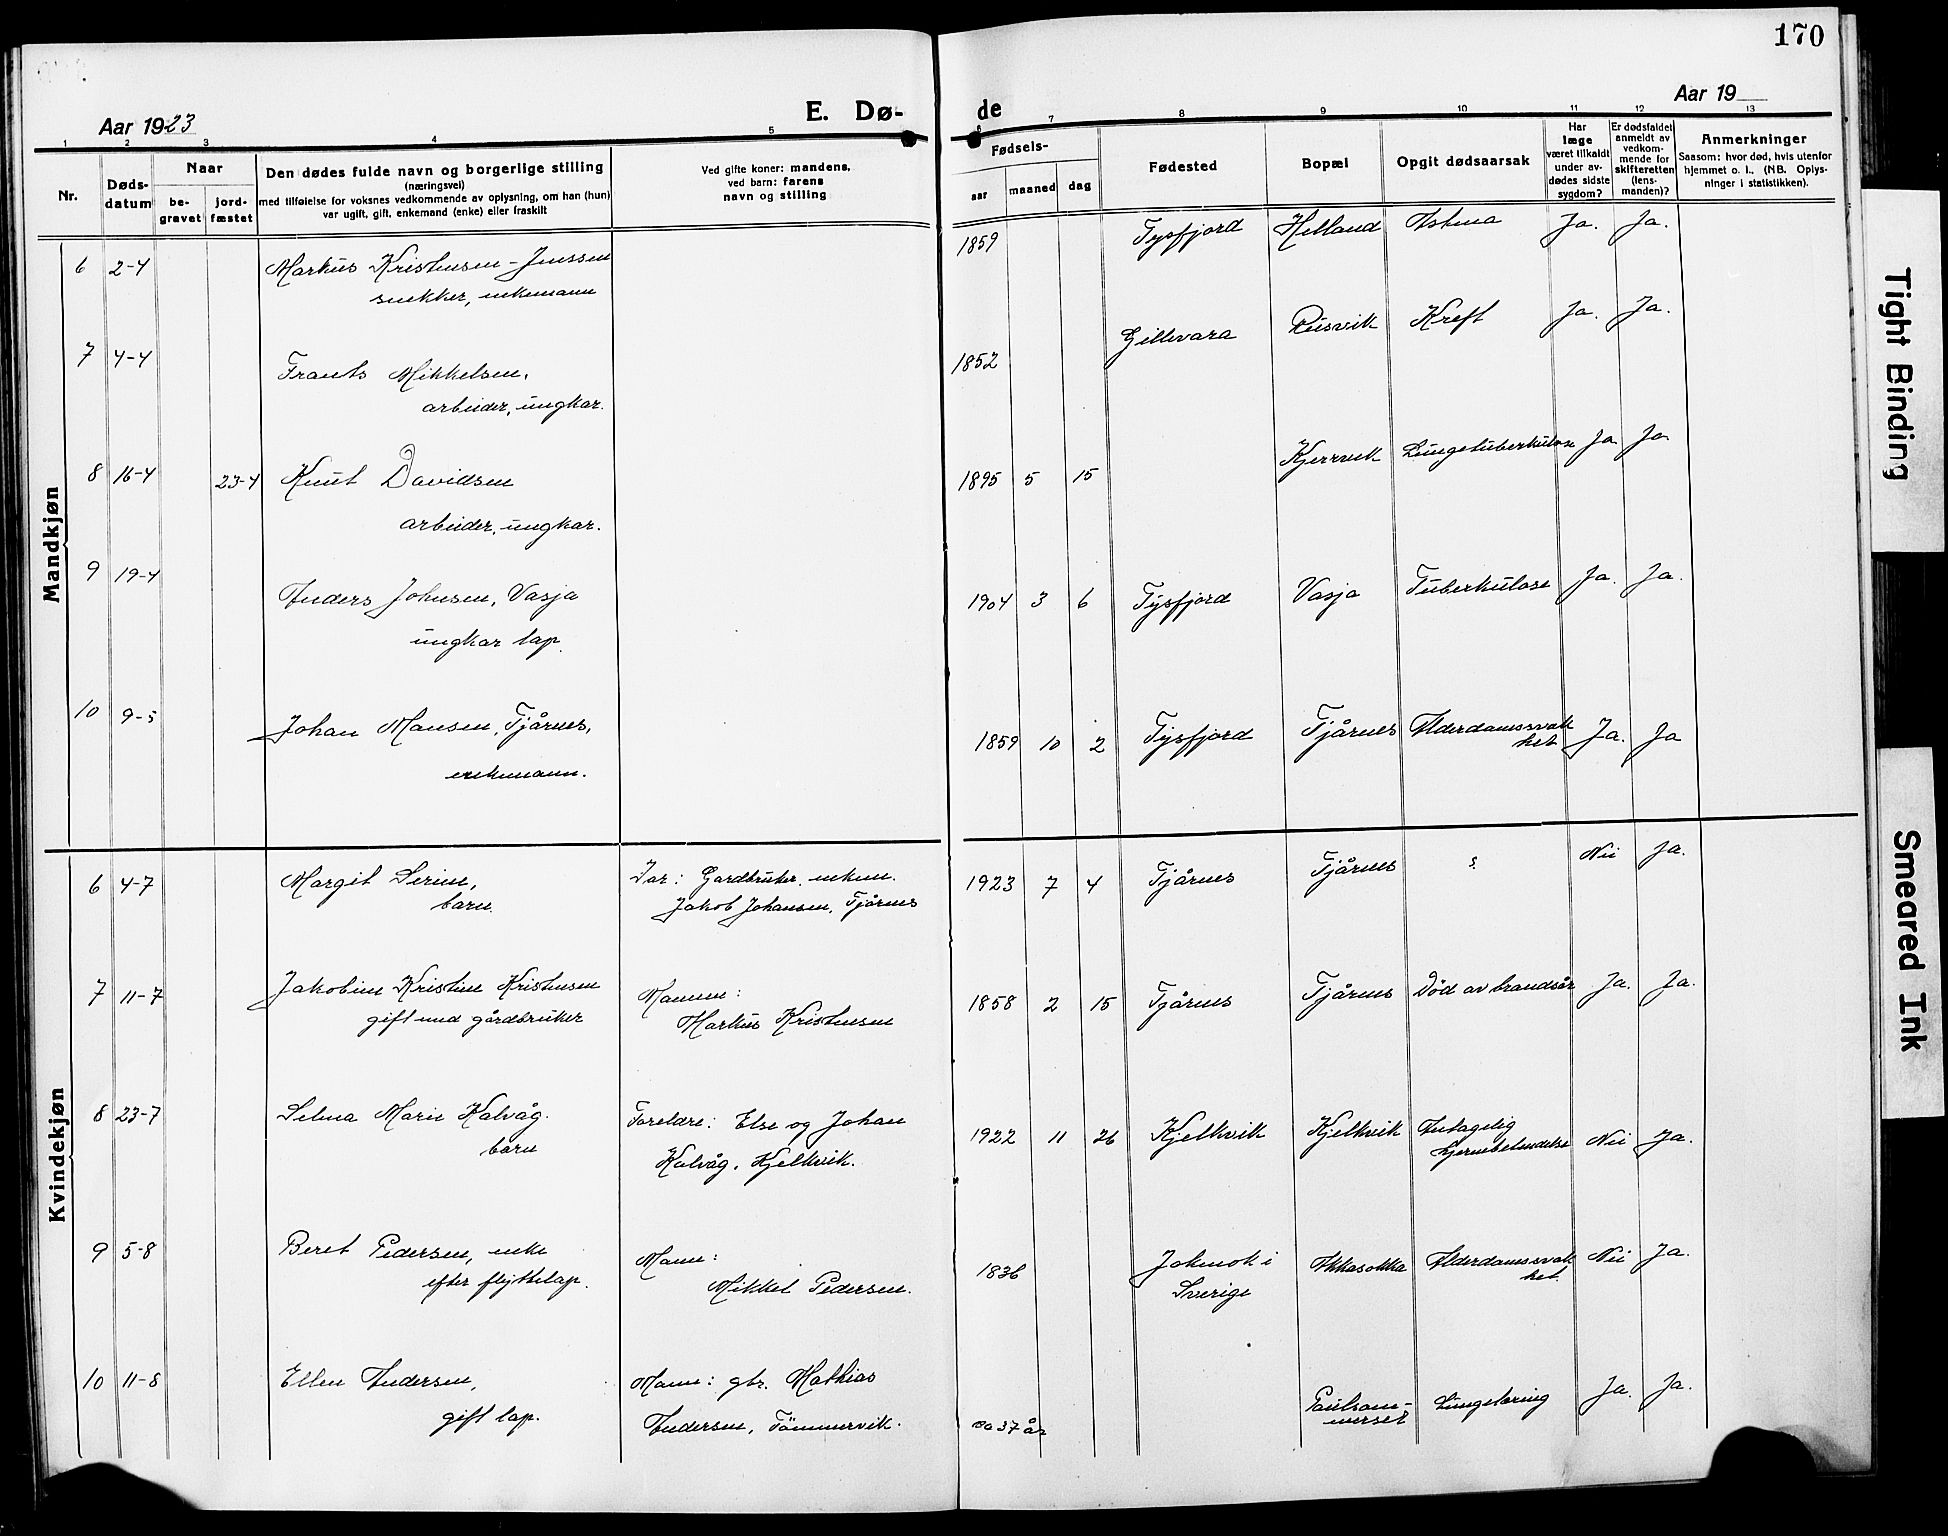 170
Aar 1923
E. Dø-
de
Aar 19
1 2 3 4 5 6 7 8 9 10 11 12 13
Nr.
Døds-
datum
Naar
be-
gravet
jord-
fæstet
Den dødes fulde navn og borgerlige stilling
(næringsvei)
med tilføielse for voksnes vedkommende av oplysning, om han (hun)
var ugift, gift, enkemand (enke) eller fraskilt
Ved gifte koner: mandens,
ved barn: farens
navn og stilling
Fødsels-
aar
maaned
dag
Fødested
Bopæl
Opgit dødsaarsak
Har
læge
været tilkaldt
under av-
dødes sidste
sygdom?
Er dødsfaldet
anmeldt av
vedkom-
mende for
skifteretten
(lens-
manden)?
Anmerkninger
Saasom: hvor død, hvis utenfor
hjemmet o. l., (NB. Oplys-
ninger i statistikken).
Mandkjøn
6 2-4 Markus Kristensen-Jenssen
snekker, enkemann
1859 Tysfjord Helland Astma Ja. Ja.
7 4-4 Frants Mikkelsen,
arbeider, ungkar.
1852 Gellivara Rusvik Kreft Ja. Ja.
8 16-4 23-4 Knut Davidsen
arbeider, ungkar.
1895 5 15 Kjerrvik Lungetuberkulose Ja Ja
9 19-4 Anders Johnsen, Vasja
ungkar lap.
1904 3 6 Tysfjord Vasja Tuberkulose Ja. Ja.
10 9-5 Johan Mansen, Tjårnes,
enkemann.
1859 10 2 Tysfjord Tjårnes Alderdomssvak
het Ja. Ja
Kvindekjøn
6 4-7 Margit Serine,
barn.
Far: Gardbruker, enkem.
Jakob Johansen, Tjårnes
1923 7 4 Tjårnes Tjårnes ? Nei Ja.
7 11-7 Jakobine Kristine Kristensen
gift med gårdbruker
Mannen:
Markus Kristensen
1858 2 15 Tjårnes Tjårnes Död av brandsår Ja. Ja.
8 23-7 Selma Marie Kalvåg.
barn
Foreldre: Else og Johan
Kalvåg, Kjelkvik.
1922 11 26 Kjelkvik Kjelkvik Antagelig
hjernebetendelse Nei Ja.
9 5-8 Beret Pedersen, enke
efter flyttelap.
Mann:
Mikkel Pedersen.
1836 Jokmok i
Sverige
Akkasokka Alderdomssvak
het. Nei Ja.
10 11-8 Ellen Andersen,
gift lap.
Mann: gbr. Mathias
Andersen, Tömmervik.
ca 37 år Lungetæring Ja. Ja.
Tight Binding
Smeared Ink